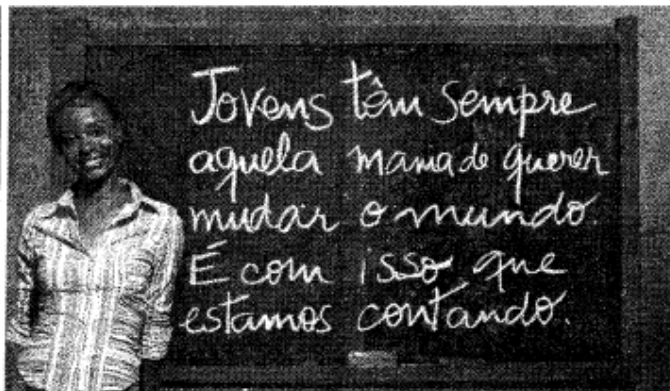 Jovens têm sempre
aquela mania de querer
mudar o mundo.
É com isso que
estamos contando.